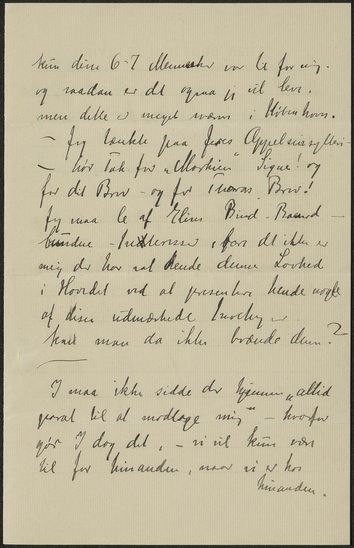 kun disse 6-7 Mennesker var til for mig.
og saadan er det ogsaa jeg vil leve.
men dette er meget svært i København.
– Jeg tænkte paa Jeres Appelsinsylteri
– hør Tak for "Morkien" Signe! og
for dit Brev – og for Inaras Brev!
Jeg maa le af Elins Bind-Baand –
bundne – Interesser, bare det ikke er
mig der har at sende denne Lovhed
i Hovedet ved at præsentere hende nogle
af disse udmærkede
kan man da ikke brænde dem?
I maa ikke sidde der hjemme "altid
parat til at modtage mig" – hvorfor
gør I dog det, – vi vil kun være
til for hinanden, naar vi er hos
hinanden.